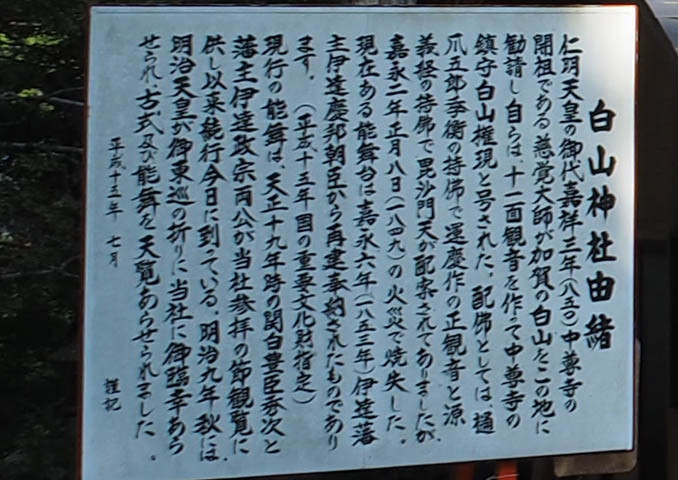 白山神社由緒
仁明天皇の御代嘉祥三年(八五〇)中尊寺の
開祖である慈覚大師が加賀の白山をこの地に
勧請し自らは十一面観音を作って中尊寺の
鎮守白山権現と号された。配佛としては、樋
爪五郎季衡の持佛で運慶作の正観音と源
義経の持佛で毘沙門天が配案されてありましたが、
嘉永二年正月八日(一八四九)の火災で焼失した。
現在ある能舞台は嘉永六年(一八五三年)伊達藩
主伊達慶邦朝臣から再建奉納されたものであり
ます。(平成十五年国の重要文化財指定)
現行の能舞は、天正十九年時の関白豊臣秀次と
藩主伊達政宗両公が当社参拝の節観覧に
供し以来続行今日に到っている。明治九年秋には、
明治天皇が御東巡の折りに当社に御臨幸あら
せられ、古式及び能舞を天覧あらせられました。
平成十五年 七月
謹記